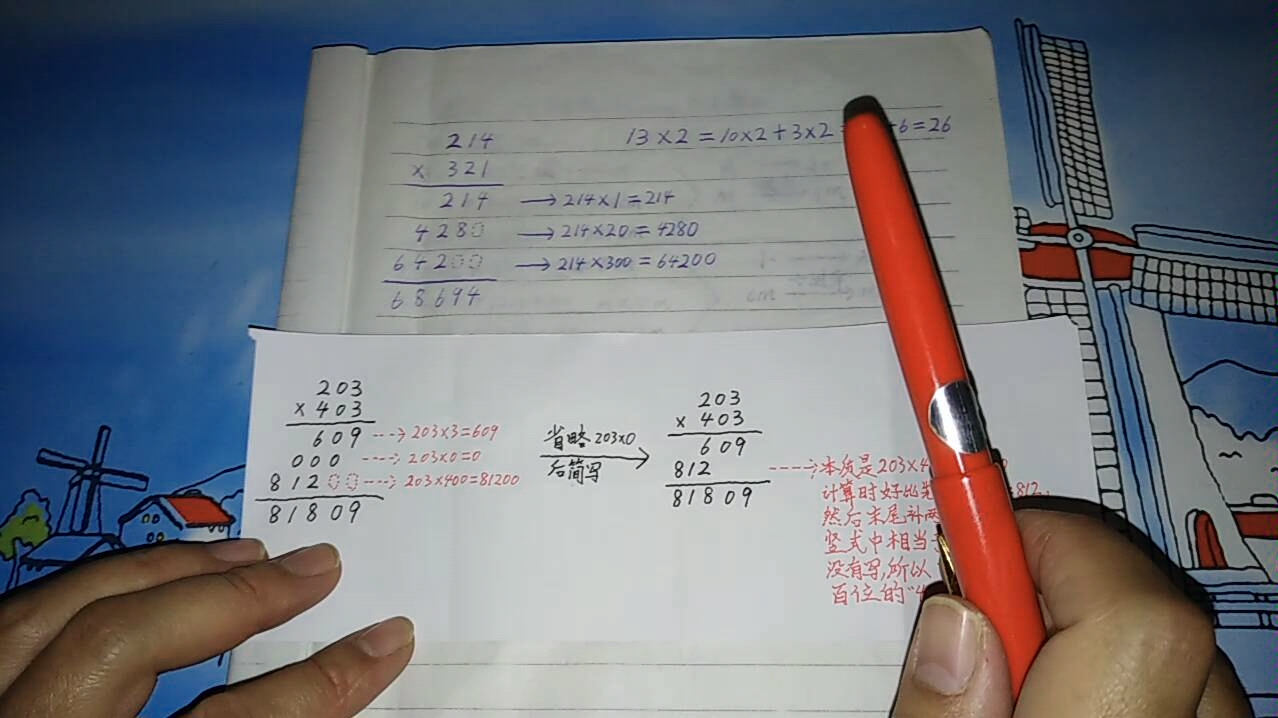 214
13×2=10×2+3×2
+6=26
× 321
214 → 214×1=214
4280 → 214×20=4280
64200 → 214×300=64200
68694
203
× 403
609 ----> 203×3=609
000 ----> 203×0=0
81200 ----> 203×400=81200
81809
省略203×0
后简写
203
× 403
609
812 ----> 本质是203×4
81809
计算时好比
=812,
然后末尾补两
竖式中相当
没有写,所以
百位的"4